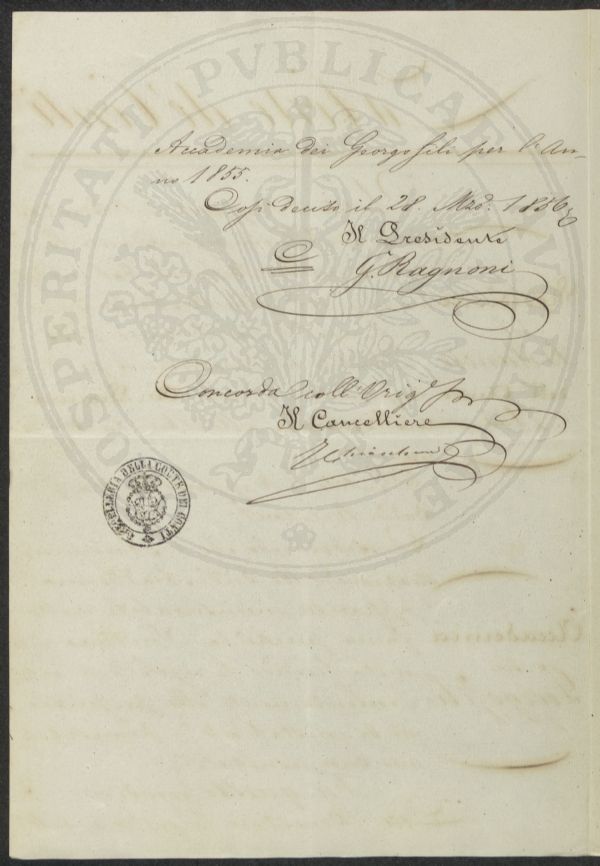 Accademia dei Georgofili per l'An-
no 1855.
Così deciso il 28. Mzo. 1856
Il Presidente
G. Ragnoni
Concorda coll'Orig.
Il Cancelliere
CANCELLERIA DELLA CORTE DEI CONTI
PROSPERITATI PUBLICAE